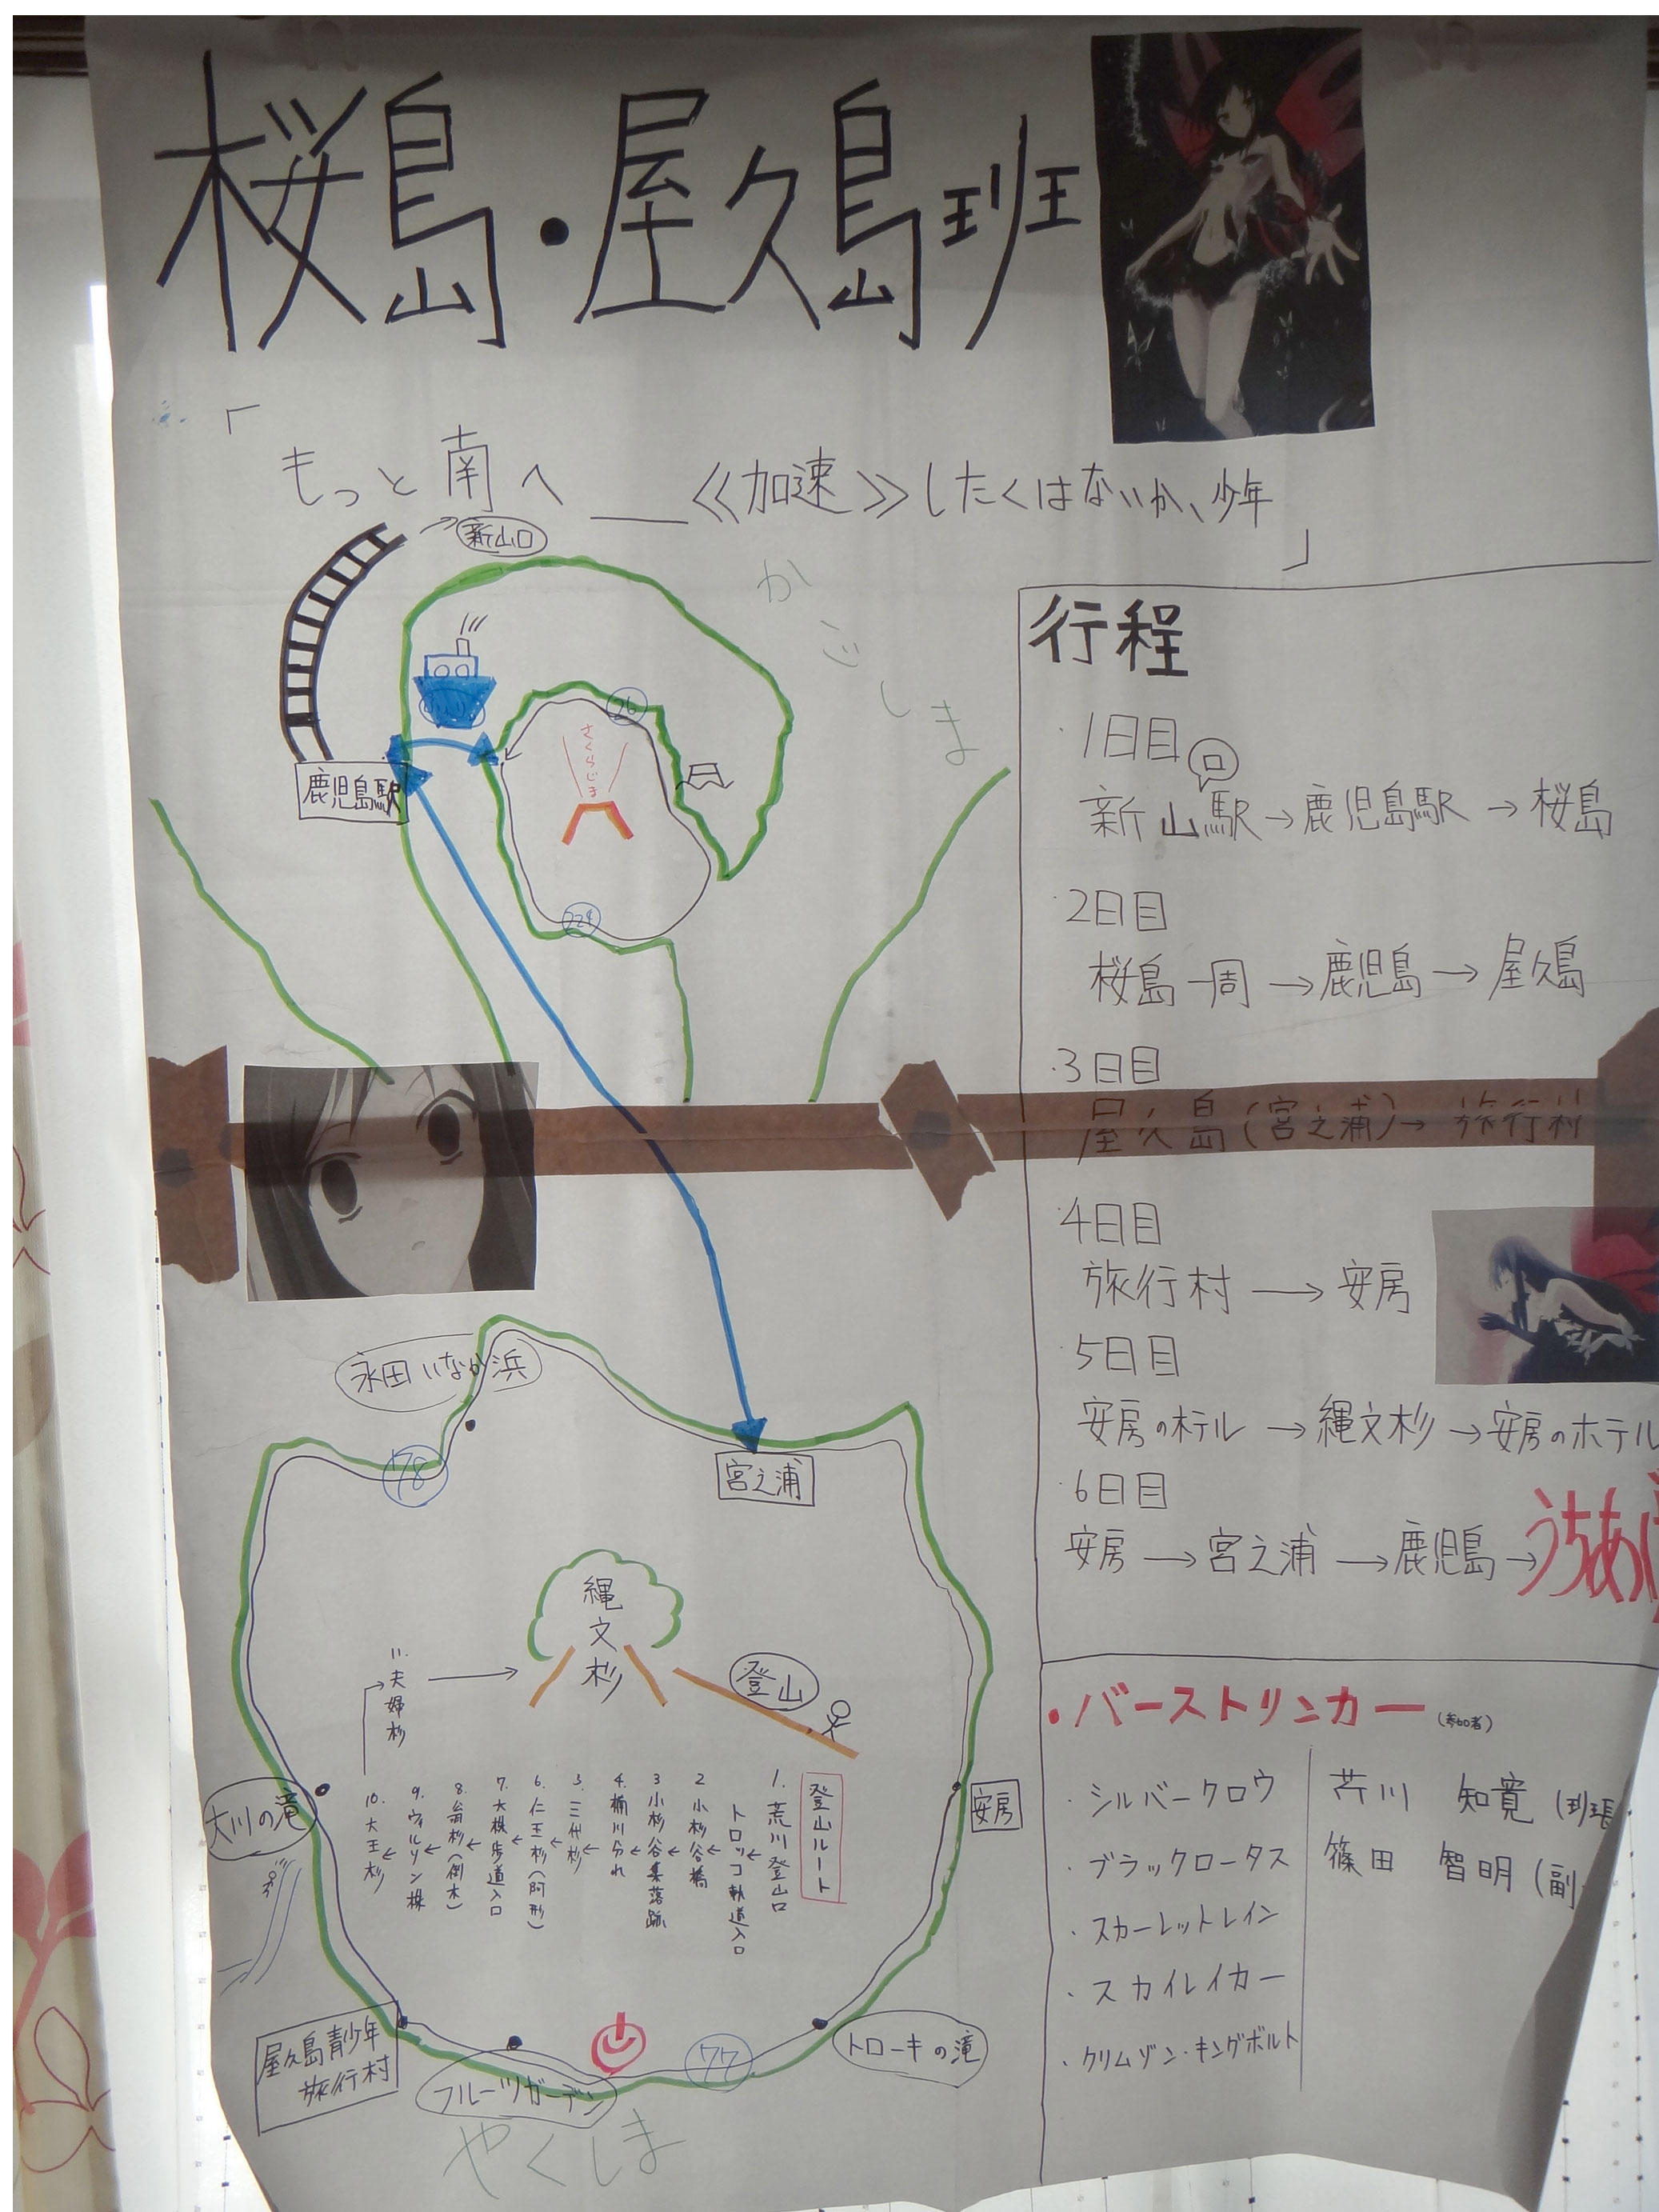 桜島・屋久島班
「もっと南へ__≪加速≫したくはないか、少年」
新山口
かごしま
26
さくらじま
鹿児島駅
224
永田いなか浜
78
宮之浦
縄文杉
登山
登山ルート
1. 荒川登山口
トロッコ軌道入口
2 小杉谷橋
3 小杉谷集落跡
4. 楠川分れ
5. 三代杉
6. 仁王杉(阿形)
7. 大株歩道入口
8. 翁杉(倒木)
9. ウィルソン株
10. 大王杉
11. 夫婦杉
大川の滝
安房
屋久島青少年旅行村
フルーツガーデン
77
トローキの滝
やくしま
行程
・1日目
新山口駅→鹿児島駅→桜島
・2日目
桜島一周→鹿児島→屋久島
・3日目
屋久島(宮之浦)→旅行村
・4日目
旅行村→安房
・5日目
安房のホテル→縄文杉→安房のホテル
・6日目
安房→宮之浦→鹿児島→うちあげ
・バーストリンカー(参加者)
・シルバークロウ 芹川 知寛(班長
・ブラックロータス 篠田 智明(副
・スカーレットレイン
・スカイレイカー
・クリムゾン・キングボルト